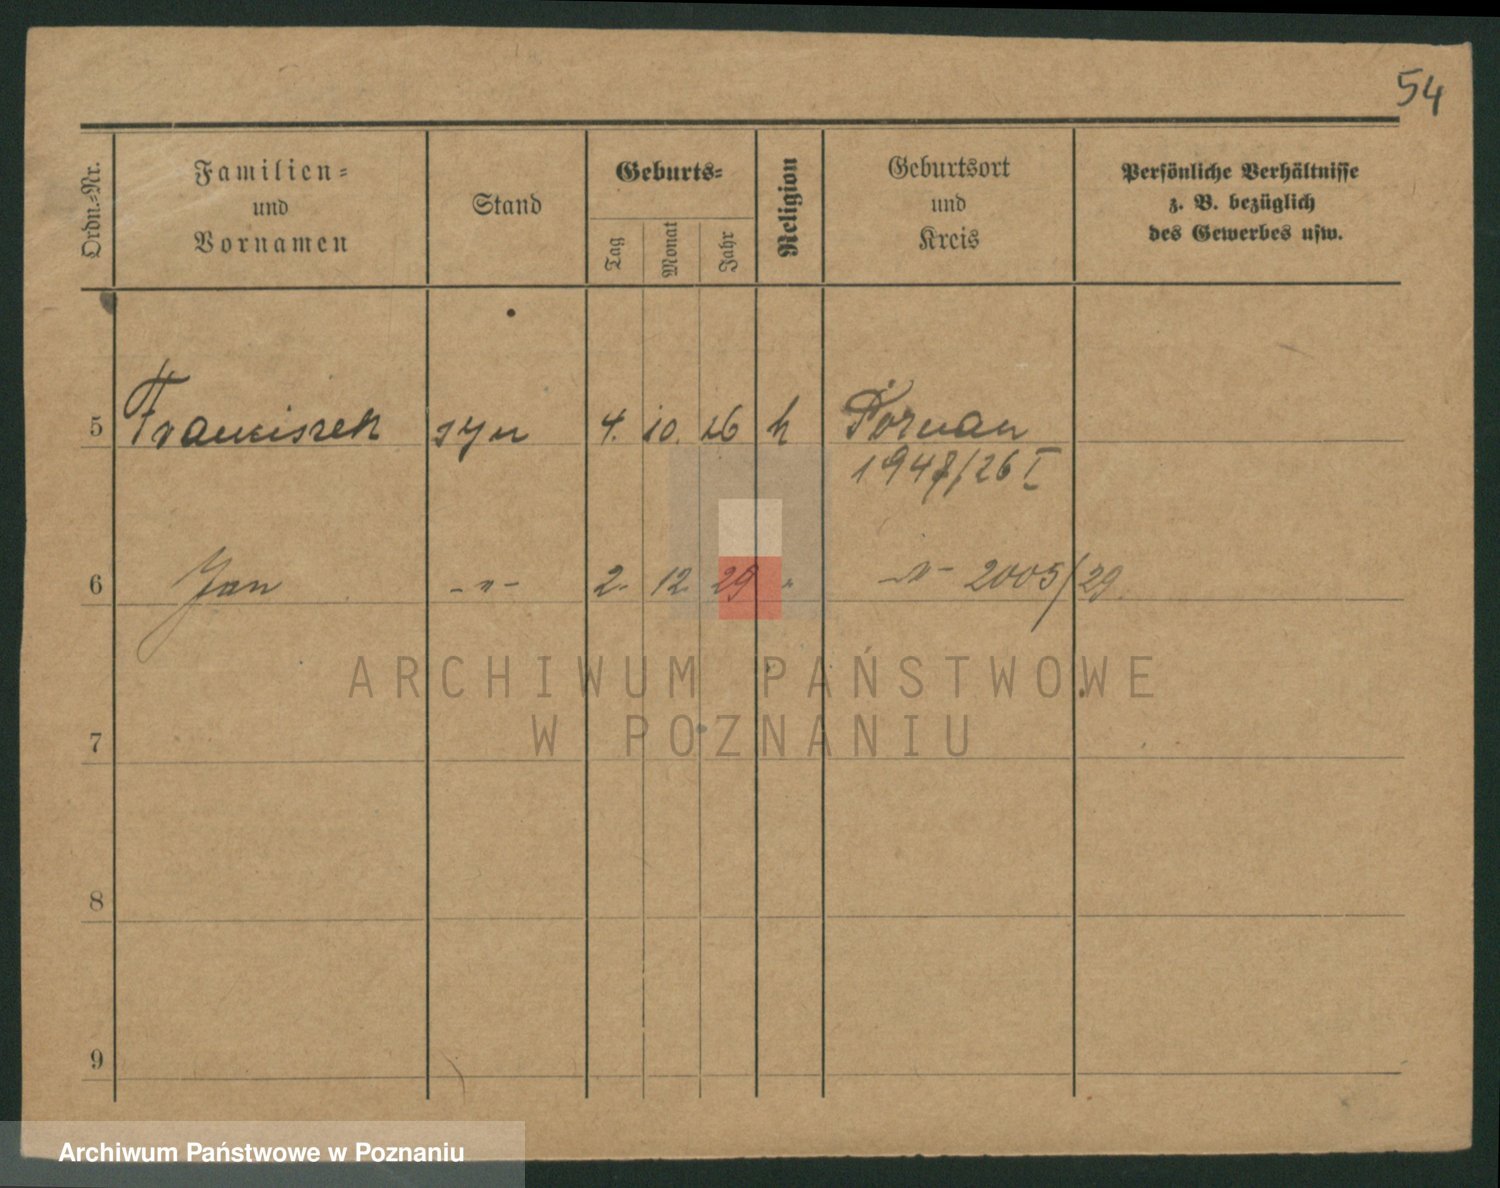 54
Ordn.-Nr.
Familien-
und
Vornamen
Stand
Geburts-
Tag
Monat
Jahr
Religion
Geburtsort
und
Kreis
Persönliche Verhältnisse
z. B. bezüglich
des Gewerbes usw.
5 Franciszek syn 4. 10. 26 k Poznań
1947/26 I
6 Jan -"- 2. 12. 29 " -"- 2005/29.
ARCHIWUM PAŃSTWOWE
W POZNANIU
7
8
9
Archiwum Państwowe w Poznaniu